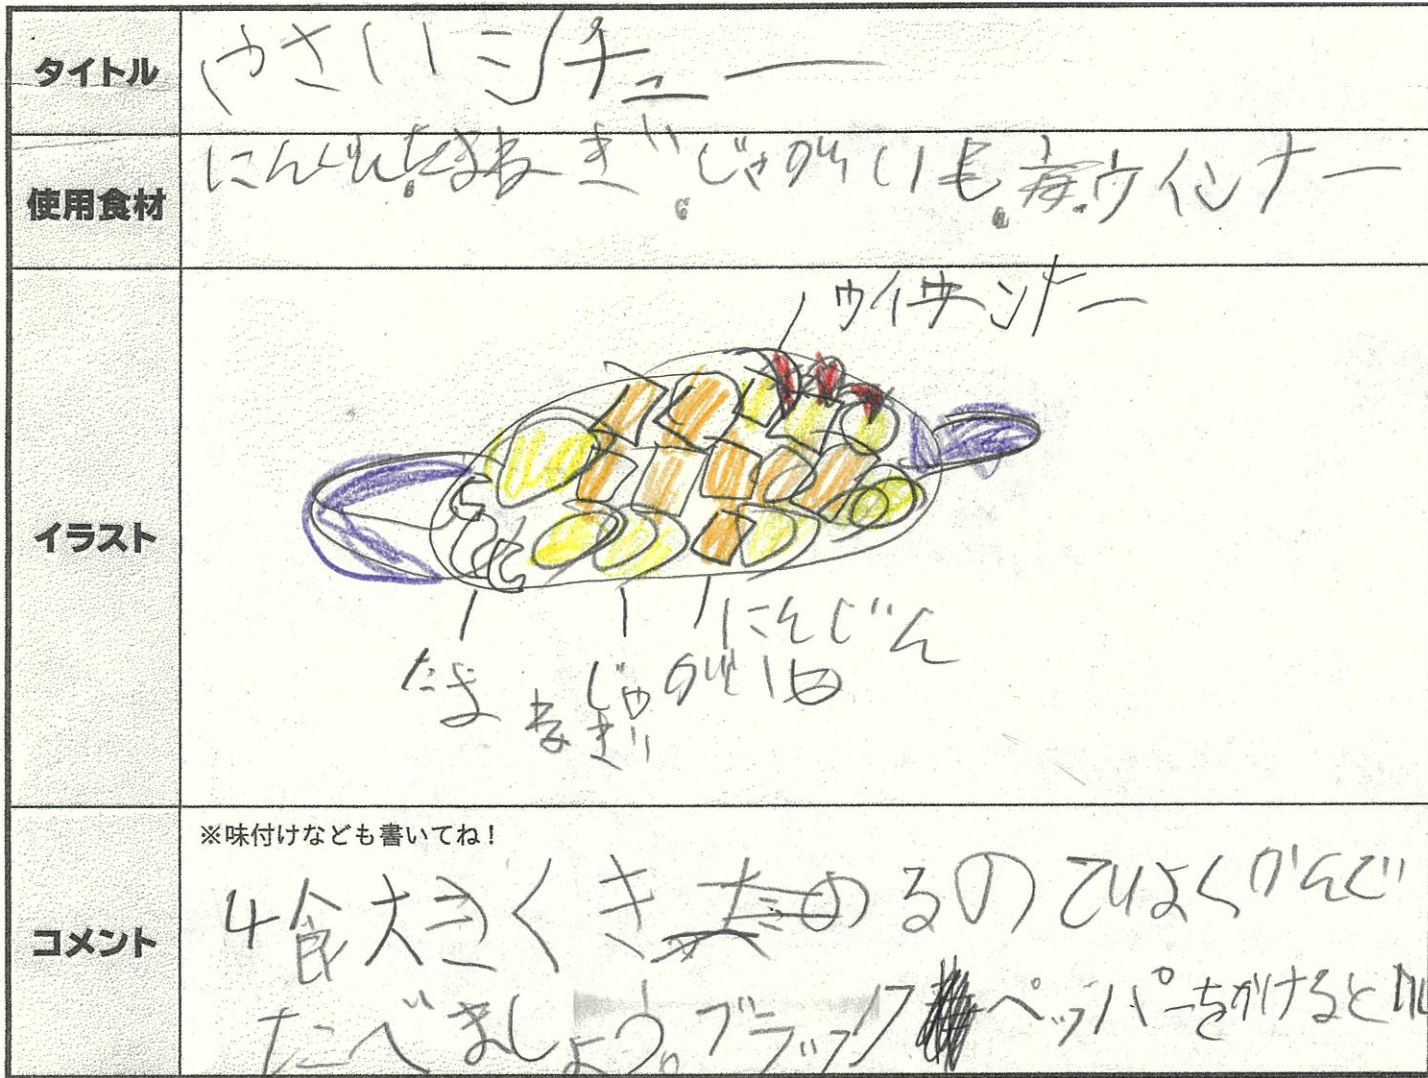 タイトル
やさいシチュー
使用食材
にんじん、たまねぎ、じゃがいも、ウインナー
イラスト
ウインナー
にんじん
じゃがいも
たま
ねぎ
コメント
※味付けなども書いてね！
4食大きくきるのでよくかんで
たべましょう。ブラックペッパーをかけると